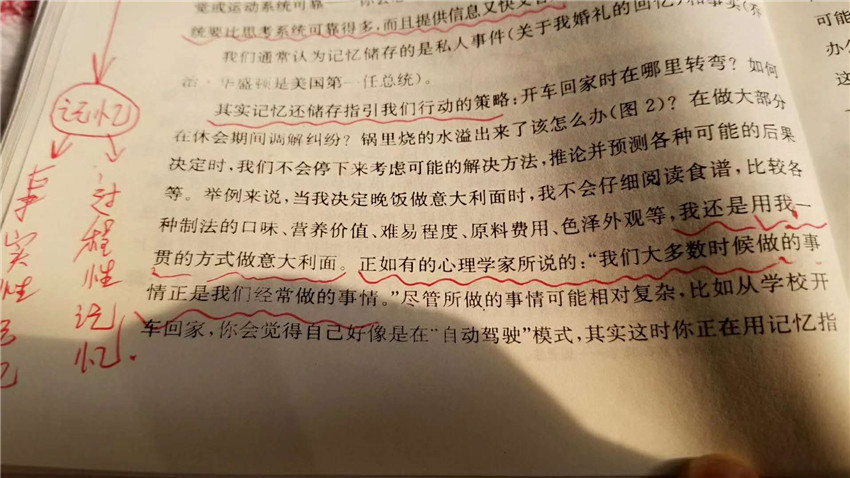 觉或运动系统可靠
统要比思考系统可靠得多，而且提供信息又快又
我们通常认为记忆储存的是私人事件（关于我婚礼的回忆）和事实（乔
治·华盛顿是美国第一任总统）。
其实记忆还储存指引我们行动的策略：开车回家时在哪里转弯？如何
在休会期间调解纠纷？锅里烧的水溢出来了该怎么办（图2）？在做大部分
决定时，我们不会停下来考虑可能的解决方法，推论并预测各种可能的后果
等。举例来说，当我决定晚饭做意大利面时，我不会仔细阅读食谱，比较各
种制法的口味、营养价值、难易程度、原料费用、色泽外观等，我还是用我一
贯的方式做意大利面。正如有的心理学家所说的：“我们大多数时候做的事
情正是我们经常做的事情。”尽管所做的事情可能相对复杂，比如从学校开
车回家，你会觉得自己好像是在“自动驾驶”模式，其实这时你正在用记忆指
记忆
事实性记
过程性记忆.
可能
办公
这